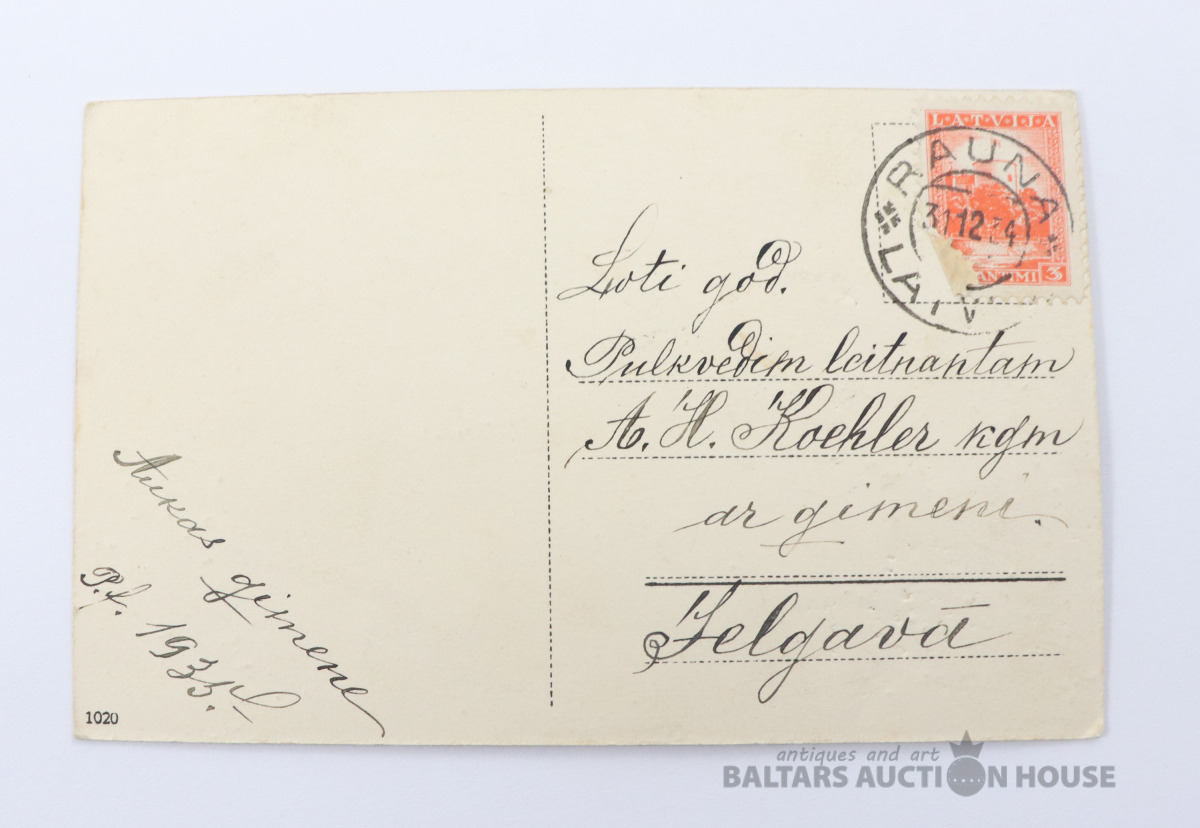 LATVIJA
RAUNA
31 12 34
LATV
ANTIMI 3
Loti god.
Pulkvedim leitnantam
A. H. Koehler kgm
ar gimeni.
Jelgavā
Aukas gimene
P.f. 1935.
1020
antiques and art
BALTARS AUCTION HOUSE